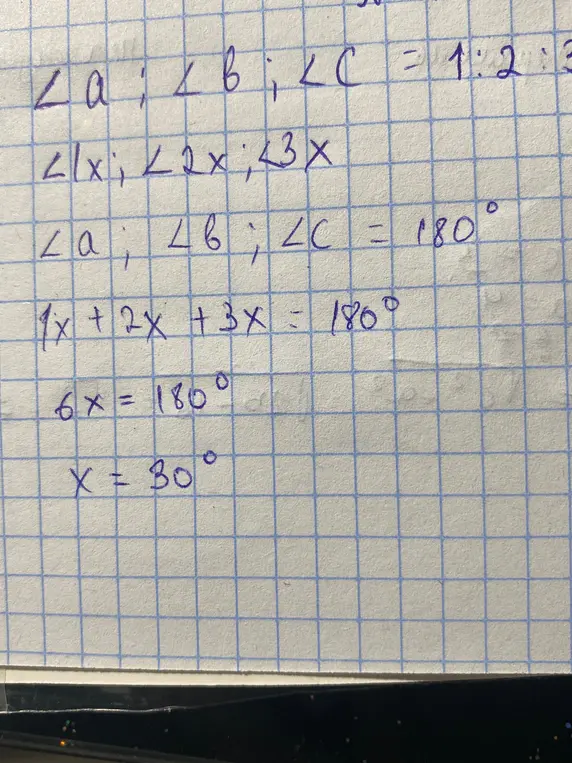 ∠a ; ∠b ; ∠C = 1:2:3
∠1x ; ∠2x ; ∠3x
∠a ; ∠b ; ∠C = 180°
1x + 2x + 3x = 180°
6x = 180°
x = 30°